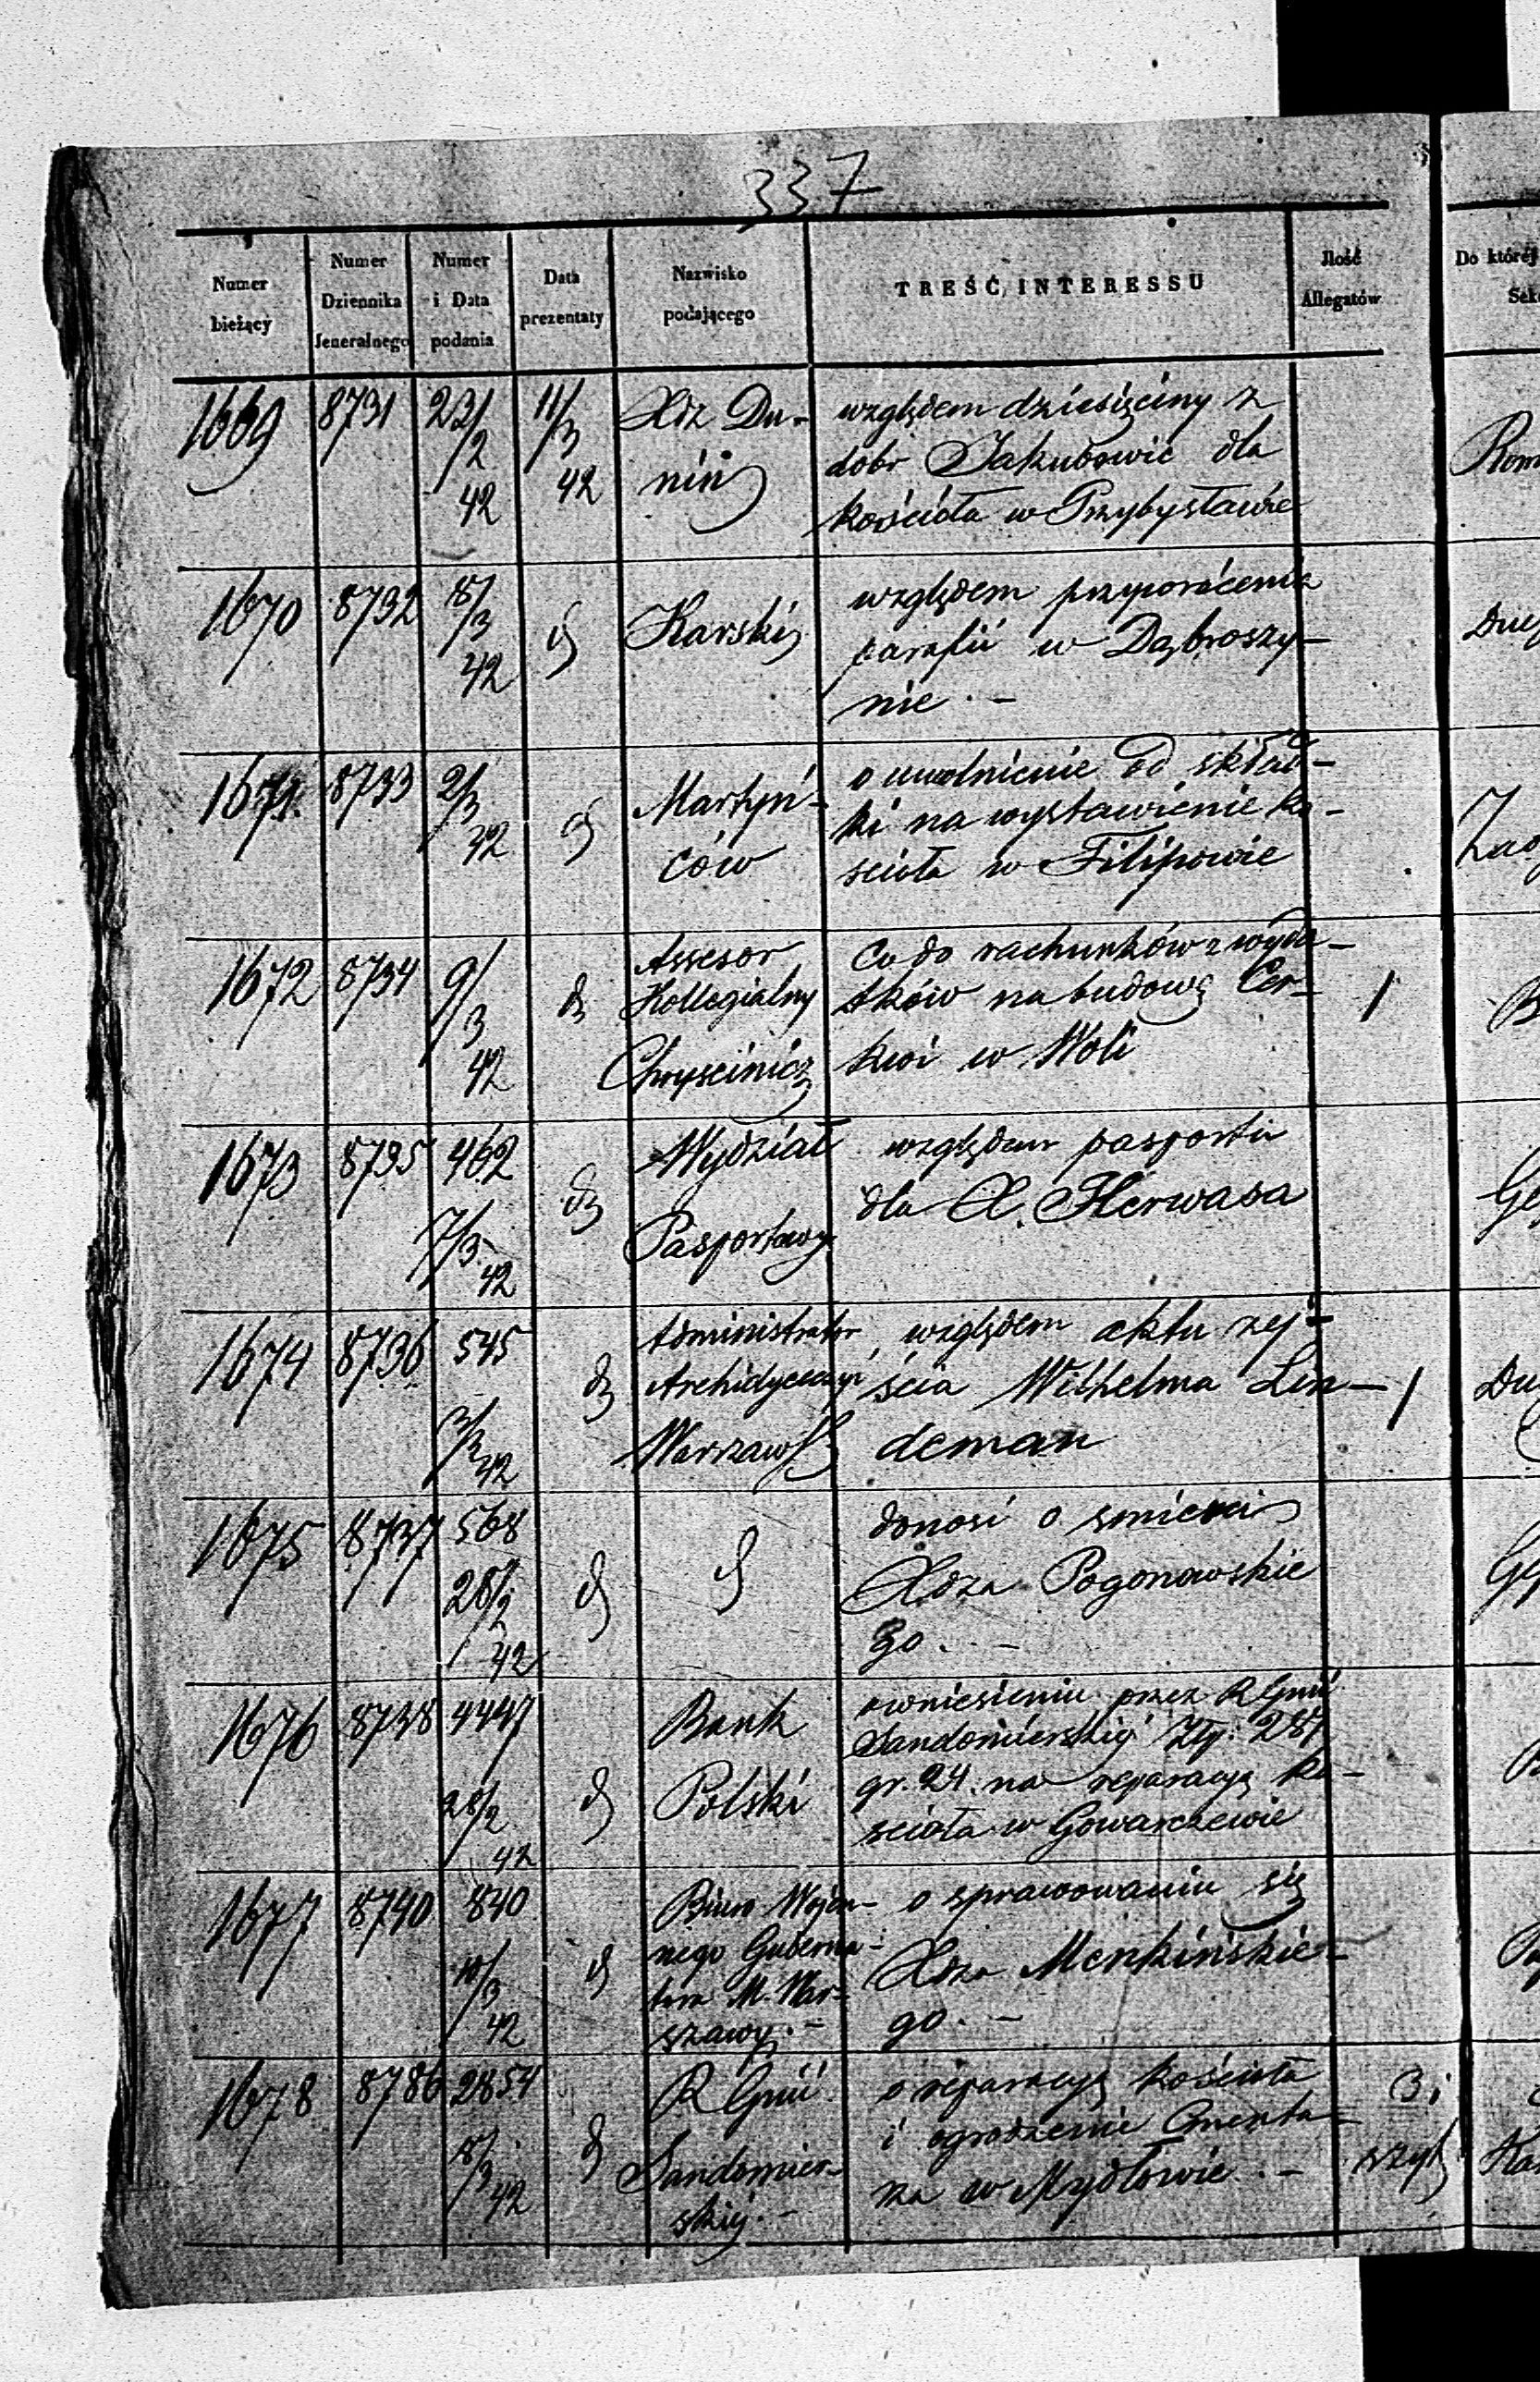 337
Numer bieżący
Numer Dziennika Jeneralnego
Numer i Data podania
Data prezentaty
Nazwisko podającego
TREŚĆ INTERESSU
Ilość Allegatów
Do której
Sek
1669 8731 23/2 42 11/3 42
Xdz Du-
nin
względem dziesięciny z
dobr Jakubowic dla
kościoła w Przybysławie
1670 8732 8/3 42
Karski
względem przywrócenia
parafii w Dąbroszy-
nie. -
1671 8733 2/3 42
Martyń-
ców
o uwolnienie od skład-
ki na wystawienie ko-
scioła w Filipowie
1672 8734 9/3 42
Assesor
Kollegialny
Chryscinicz
Co do rachunków z wyda-
tków na budowę Cer-
kwi w Woli
/
1673 8735 462 7/3 42
Wydział
Pasportowy
względem pasportu
dla X. Herwasa
1674 8736 545 42
Administrator
Archidyecezyi
Warszaws
względem aktu zej-
ścia Wilhelma Lin-
deman
/
1675 8737 568 28/2 42
donosi o smierci
Xdza Pogonowskie
go. -
1676 8738 4447 28/2 42
Bank
Polski
o wniesieniu przez R Gnii
Sandomierskiej Złp. 287
gr. 24. na reparacyą ko-
scioła w Gowarczewie
1677 8740 840 10/3 42
Biuro Wojen-
nego Guberna-
tora M. War-
szawy. -
o sprawowaniu się
Xdza Menkińskie-
go. -
1678 8786 2854 8/3 42
R Gnii
Sandomier-
skiej. -
o reparacyą kościoła
i ogrodzenie Cmenta-
rza w Mydłowie. -
3 i